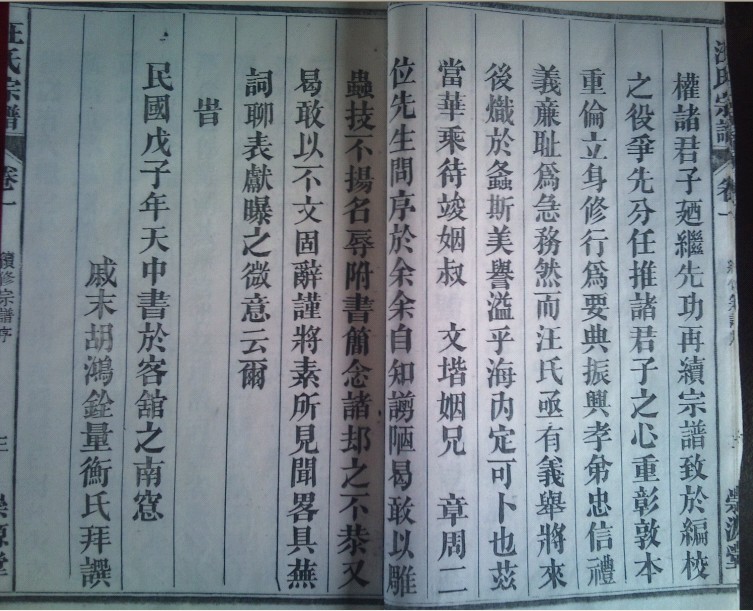 汪氏宗譜 卷一
權諸君子廼繼先功再續宗譜致於編校
之役爭先分任推諸君子之心重彰敦本
重倫立身修行爲要典振興孝弟忠信禮
義亷耻爲急務然而汪氏亟有義舉將來
後熾於螽斯美譽溢乎海内定可卜也兹
當華乘待竣姻叔 文堦姻兄 章周二
位先生問序於余余自知謭陋曷敢以雕
蟲技不揚名辱附書簡念諸却之不恭又
曷敢以不文固辭謹將素所見聞畧具蕪
詞聊表獻曝之微意云爾
旹
民國戊子年天中書於客舘之南窓
戚末胡鴻銓量衡氏拜譔
汪氏宗譜 卷一 續修宗譜序 三